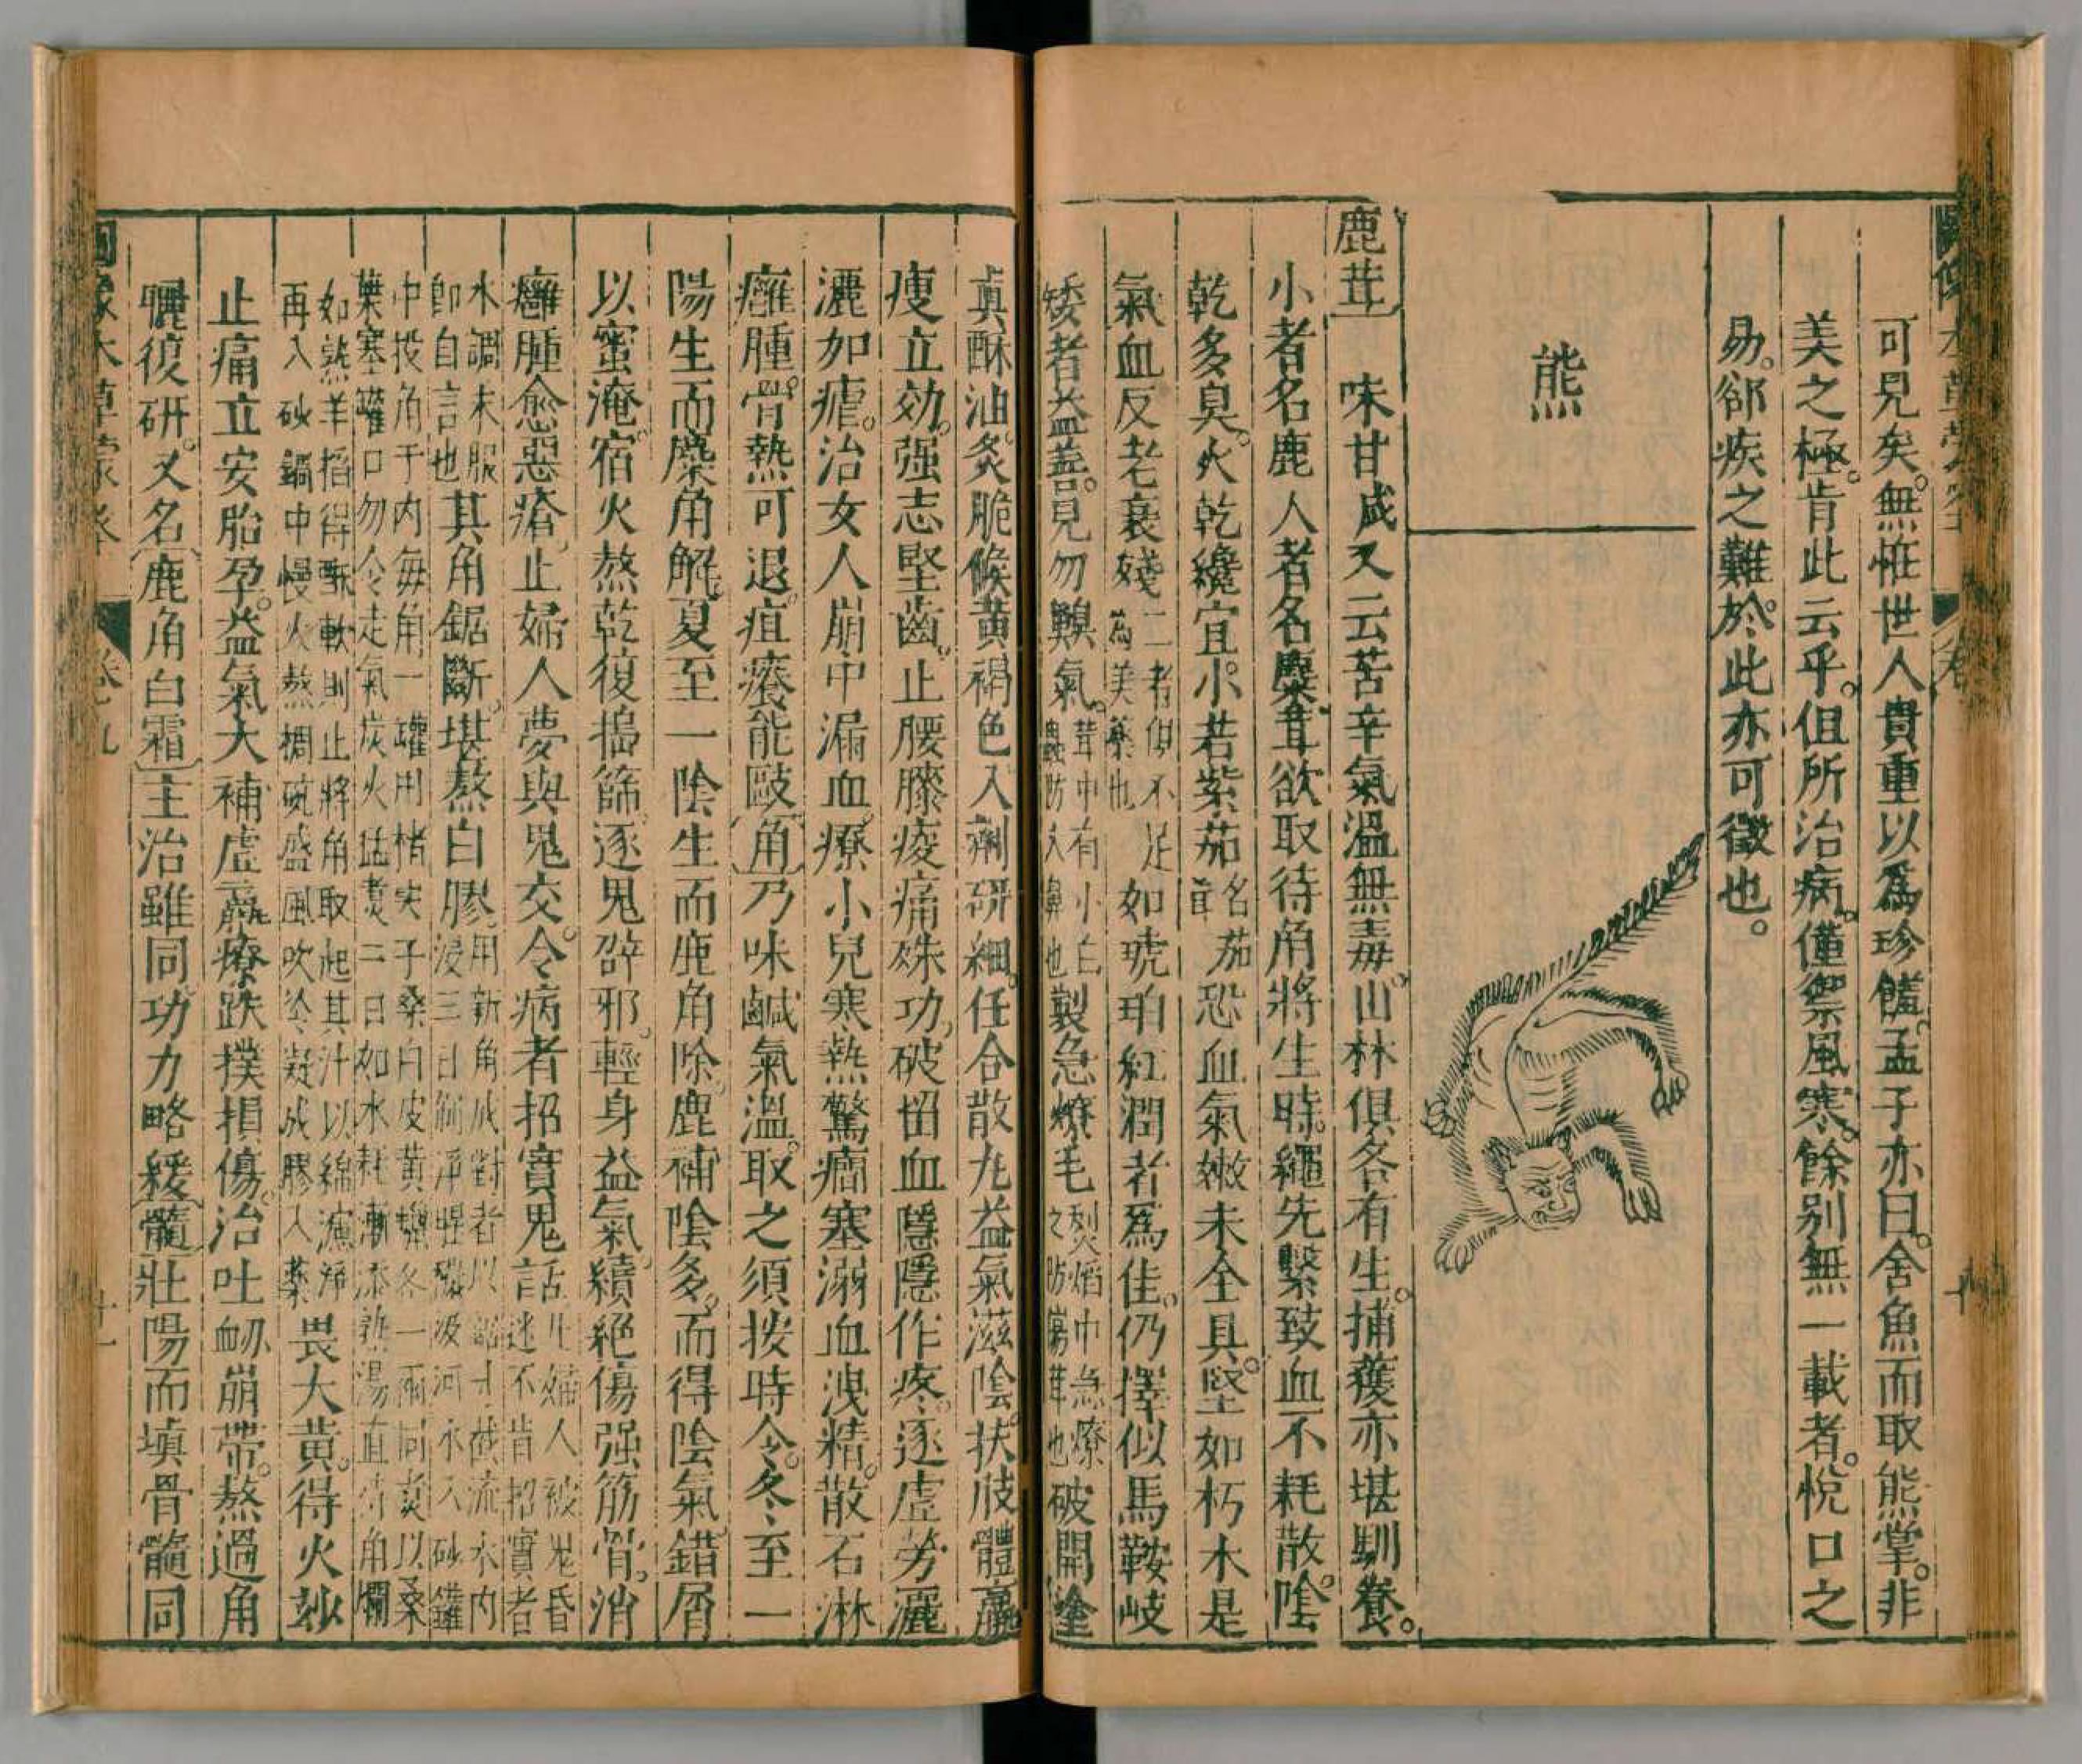 可見矣。無恠世人貴重以爲珍饈。孟子亦曰。舍魚而取熊掌。非
美之極。肯此云乎。但所治病。僅禦風寒。餘别無一載者。悅口之
易。郤疾之難。於此亦可徵也。
熊
鹿茸 味甘咸又云苦辛氣溫無毒。山林俱各有生。捕獲亦堪馴養。
小者名鹿人者名麋茸欲取待角將生時。繩先繫致血不耗散。陰
乾多臭。火乾纔宜。小若紫茄名茄茸恐血氣嫩未全具。堅如朽木是
氣血反老衰殘二者俱不足爲美藥也如琥珀紅潤者爲佳。仍擇似馬鞍岐
矮者益善。見勿齅氣。茸中有小白蟲防入鼻也製急燎毛烈焰中急燎之防傷茸也破開塗
眞酥油。炙脆候黃褐色入劑研細。任合散丸益氣滋陰。扶肢體羸
瘦立効。强志堅齒。止腰膝痠痛殊功。破畱血隱隱作疼。逐虚勞灑
灑如瘧。治女人崩中漏血。療小兒寒熱驚癎塞溺血洩精。散石淋
癰腫。骨熱可退。疽癢能敺角乃味鹹氣溫。取之須按時令。冬至一
陽生而麋角解。夏至一陰生而鹿角除。鹿補陰多。而得陰氣錯屑
以蜜淹。宿火熬乾復搗篩。逐鬼辟邪。輕身益氣。續絕傷强筋骨。消
癰腫愈惡瘡。止婦人夢與鬼交。令病者招實鬼話凡婦人被鬼昏迷不肯招實者
水調末服卽自言也其角鋸斷。堪熬白膠。用新角成對者以鋸寸截流水内浸三日刷淨腥穢汲河水入砂鑵
中投角于内每角一鑵用楮实子桑白皮黃蠟各一兩同煑以桑葉塞鑵口勿令走氣炭火猛煑二日如水耗漸添熟湯直待角爛
如熟羊搯得酥軟則止將角取起其汁以綿濾淨再入砂鍋中慢火熬稠碗盛風吹冷凝成膠入藥畏大黃。得火玅
止痛立安胎孕。益氣大補虚羸。療跌撲損傷。治吐衂崩帶。熬過角
曬復研。又名鹿角白霜主治雖同。功力略緩髓壯陽而塡骨髓同
圖像本草蒙筌
卷九
十一